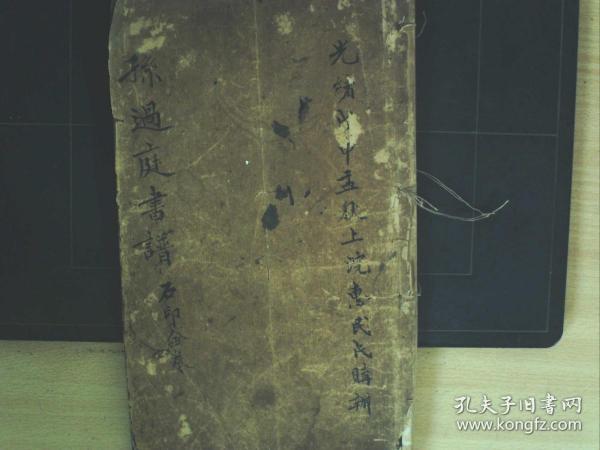 光緒甲申孟秋上浣惠民氏購
孫過庭書譜
石印
孔夫子旧书网
www.kongfz.com